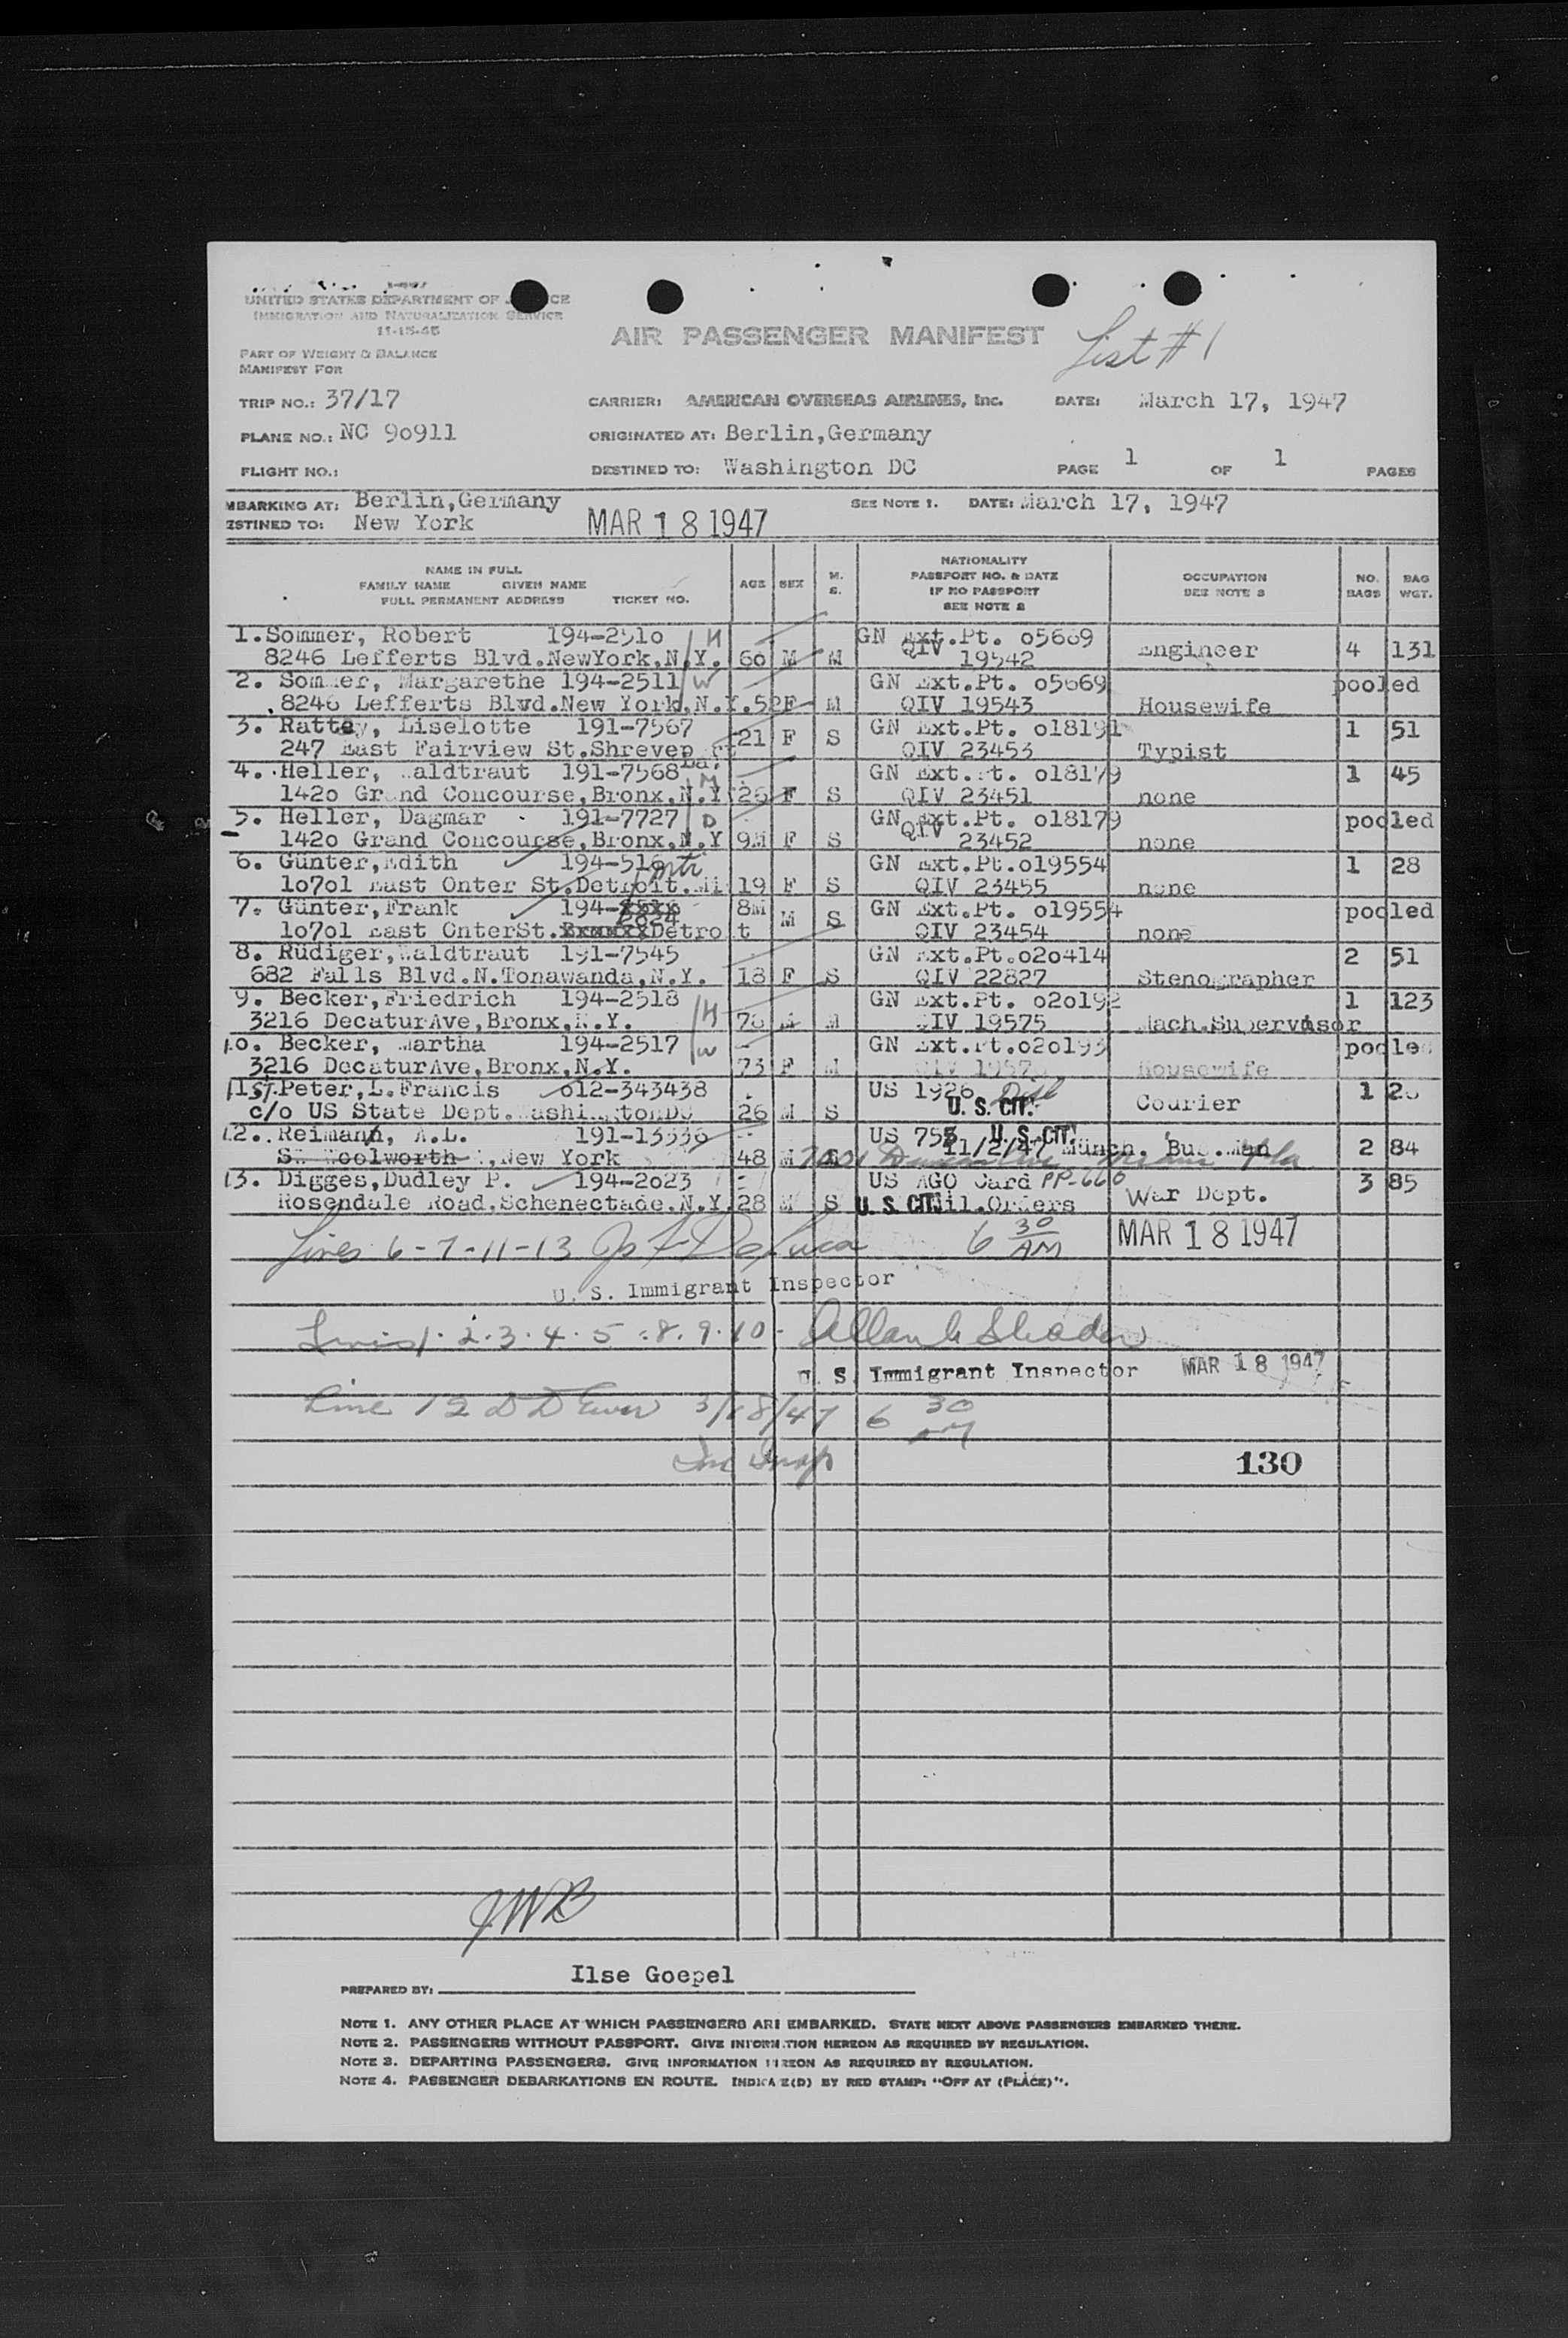 UNITED STATES DEPARTMENT OF CE
IMMIGRATION AND NATURALIZATION SERVICE
11-15-45
AIR PASSENGER MANIFEST
List #1
PART OF WEIGHT & BALANCE
MANIFEST FOR
TRIP NO.: 37/17 CARRIER: AMERICAN OVERSEAS AIRLINES, Inc. DATE: March 17, 1947
PLANE NO.: NC 9o911 ORIGINATED AT: Berlin,Germany
FLIGHT NO.: DESTINED TO: Washington DC PAGE 1 OF 1 PAGES
MBARKING AT: Berlin,Germany SEE NOTE 1. DATE: March 17, 1947
ESTINED TO: New York MAR 18 1947
NAME IN FULL
FAMILY NAME GIVEN NAME
FULL PERMANENT ADDRESS TICKET NO.
AGE SEX M. S.
NATIONALITY
PASSPORT NO. & DATE
IF NO PASSPORT
SEE NOTE 2
OCCUPATION
SEE NOTE 3
NO. BAGS
BAG WGT.
1.Sommer, Robert 194-251o H GN Ext.Pt. o5669
8246 Lefferts Blvd.NewYork,N.Y. 6o M M QIV 19542 Engineer 4 131
2. Sommer, Margarethe 194-2511 W GN Ext.Pt. o5669 pooled
8246 Lefferts Blvd.New York,N.Y. 52 F M QIV 19543 Housewife
3. Rattey, Liselotte 191-7567 GN Ext.Pt. o18191 1 51
247 East Fairview St.Shrevep rt 21 F S QIV 23453 Typist
La.
4. Heller, Waldtraut 191-7568 M GN Ext.Pt. o18179 1 45
142o Grand Concourse,Bronx,N.Y 26 F S QIV 23451 none
5. Heller, Dagmar 191-7727 D GN Ext.Pt. o18179 pooled
142o Grand Concourse,Bronx,N.Y 9M F S QIV 23452 none
6. Günter,Edith GN Ext.Pt.o19554 1 28
1o7o1 East Onter St.Detroit.Mi 19 F S QIV 23455 none
7. Günter,Frank 194- 8M GN Ext.Pt. o19554 pooled
1o7o1 East OnterSt. Detroit M S QIV 23454 none
8. Rüdiger,Waldtraut 191-7545 GN Ext.Pt.o2o414 2 51
682 Falls Blvd.N.Tonawanda,N.Y. 18 F S QIV 22827 Stenographer
9. Becker,Friedrich 194-2518 H GN Ext.Pt. o2o192 1 123
3216 DecaturAve,Bronx,N.Y. M M QIV 19575 Mach.Supervisor
1o. Becker, Martha 194-2517 W GN Ext.Pt.o2o193 pooled
3216 DecaturAve,Bronx,N.Y. 73 F M QIV Housewife
Peter,L.Francis o12-343438 US 1926 1
c/o US State Dept.WashingtonDC 26 M S U. S. CIT. Courier
12. Reimann, A.L. 191-13536 US U. S. CIT.
Woolworth ,New York 48 M 11/2/47 Münch. Bus.Man 2 84
13. Digges,Dudley P. 194-2o23 US AGO Card PP-660 3 85
Rosendale Road.Schenectade.N.Y. 28 M S U. S. CIT. Mil.Orders War Dept.
Lines 6-7-11-13 6 30 AM MAR 18 1947
U. S. Immigrant Inspector
Lines 1.2.3.4.5.8.9.10
U. S. Immigrant Inspector MAR 18 1947
Line 12 3/18/47 6 30
130
JWB
PREPARED BY: Ilse Goepel
NOTE 1. ANY OTHER PLACE AT WHICH PASSENGERS ARE EMBARKED. STATE NEXT ABOVE PASSENGERS EMBARKED THERE.
NOTE 2. PASSENGERS WITHOUT PASSPORT. GIVE INFORMATION HEREON AS REQUIRED BY REGULATION.
NOTE 3. DEPARTING PASSENGERS. GIVE INFORMATION HEREON AS REQUIRED BY REGULATION.
NOTE 4. PASSENGER DEBARKATIONS EN ROUTE. INDICATE(D) BY RED STAMP: "OFF AT (PLACE)".